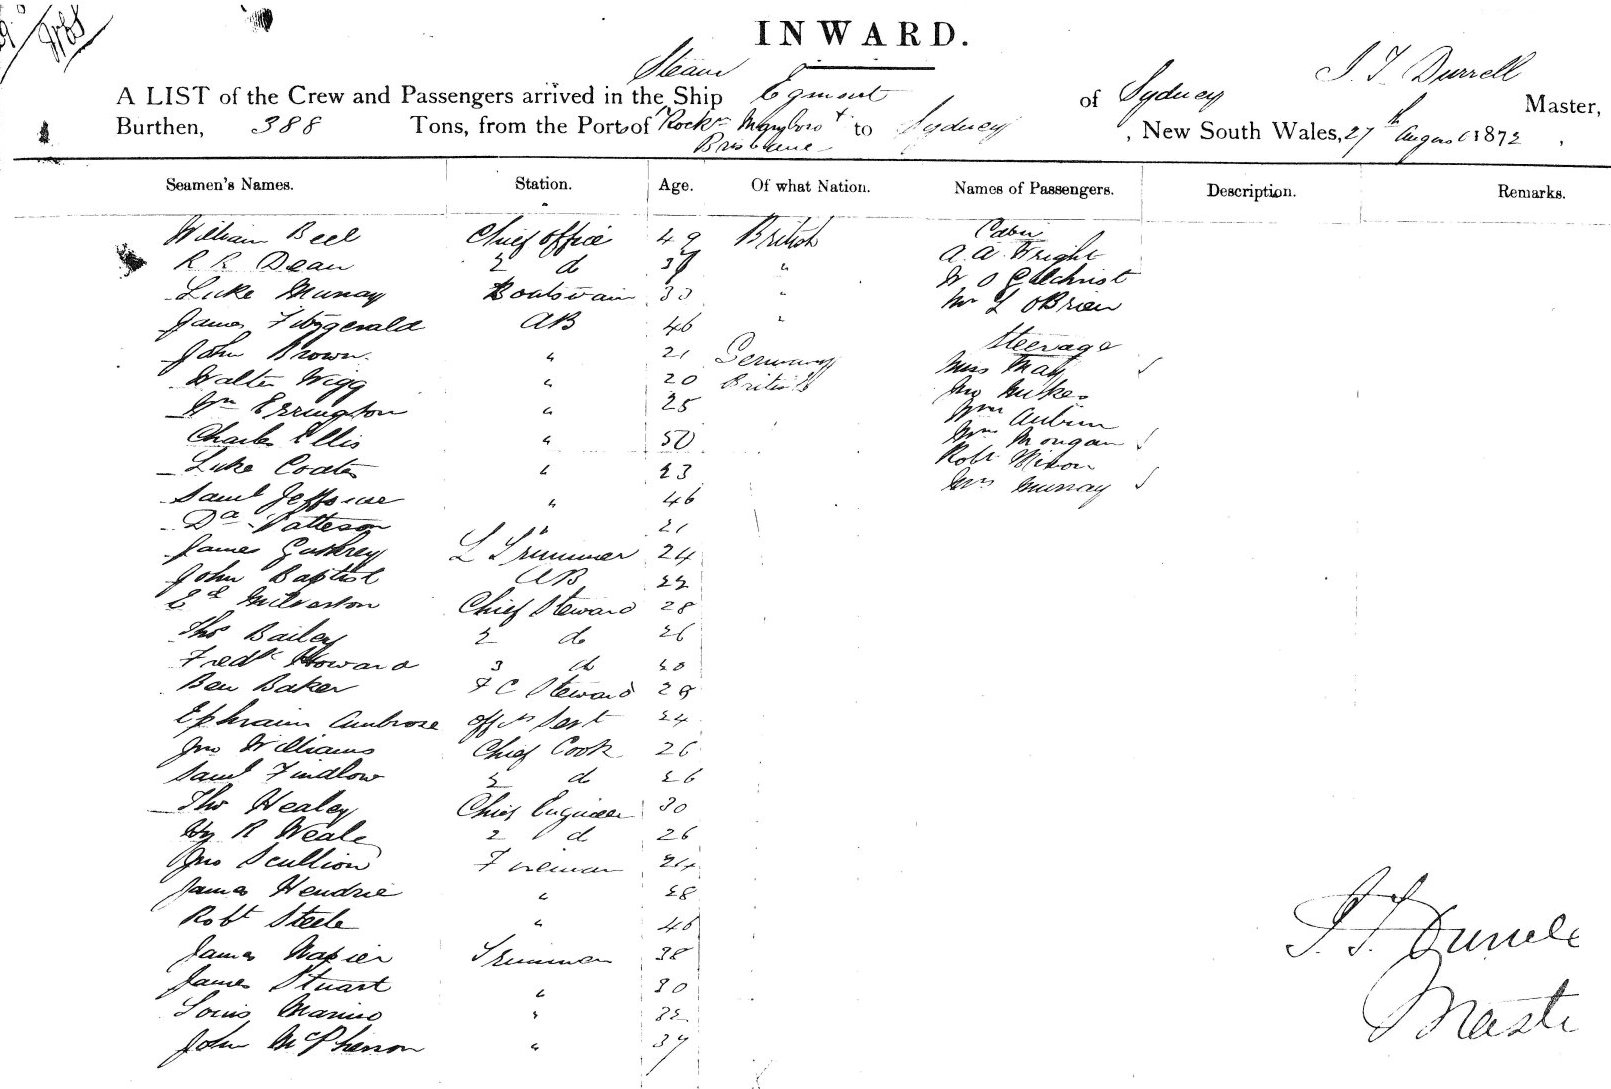 INWARD.
Steam
A LIST of the Crew and Passengers arrived in the Ship Egmont of Sydney J. T. Durrell Master,
Burthen, 388 Tons, from the Port of Rockn Maryboro + to Sydney, New South Wales, 27th August 1872
Brisbane
Seamen's Names. Station. Age. Of what Nation. Names of Passengers. Description. Remarks.
William Bell Chief Office 49 British Cabin
R R Dean 2 d " A. A. Wright
Luke Murray Boatswain 33 " W O Gilchrist
James Fitzgerald AB 46 " Mr L OBrien
John Brown. " 21 Germany Steerage
Walter Wigg " 20 British Miss May
Wm Errington " 25 Jno
Charles Ellis " 50 Wm Aubin
Luke Coates " 23 Mougan
Saml " 46 Robt Mixon
Da Patteson " 21 Mrs Murray
James L Trimmer 24
John Baptist AB 22
Ed Milverton Chief Steward 28
Thos Bailey 2 do 26
Fredk Howard 3 do 20
Ben Baker F C Steward 28
Ephraim Ambrose offrs Servt 24
Jno Williams Chief Cook 26
Saml Findlow 2 do 26
Thos Healey Chief Engineer 30
Hy R Weale 2 d 26
Jno Scullion Fireman 24
James Hendrie " 28
Robt Steele " 46
James Napier Trimmer 38
James Stuart " 30
Louis Marino " 32
John McPherson " 37
J. T. Durrell
Master